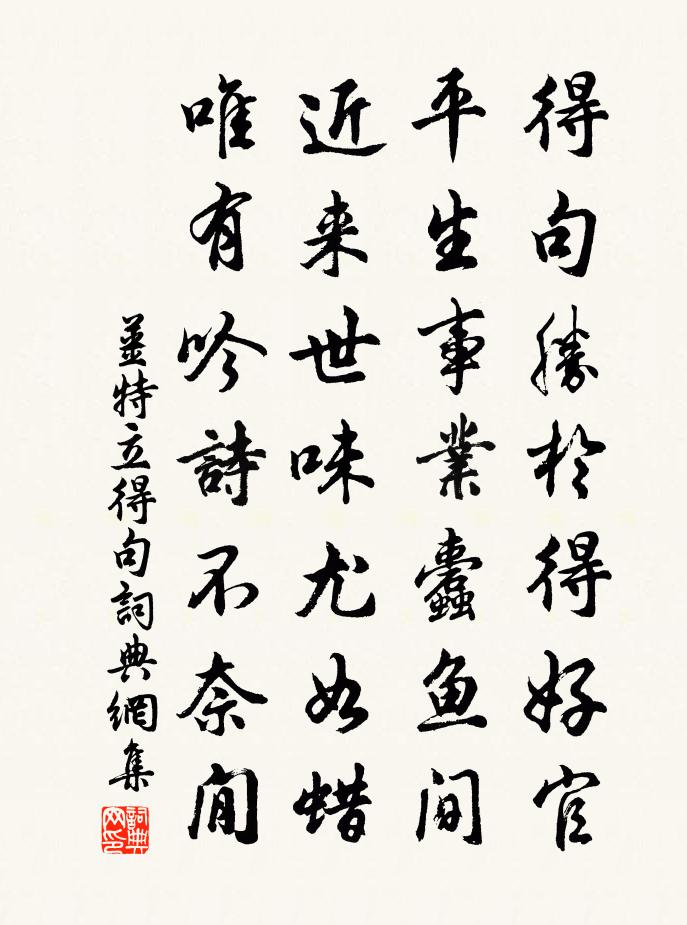 得句勝於得好官
平生事業蠹魚間
近来世味尤如蜡
唯有吟詩不奈閒
薑特立得句詞典網集
詞典网印